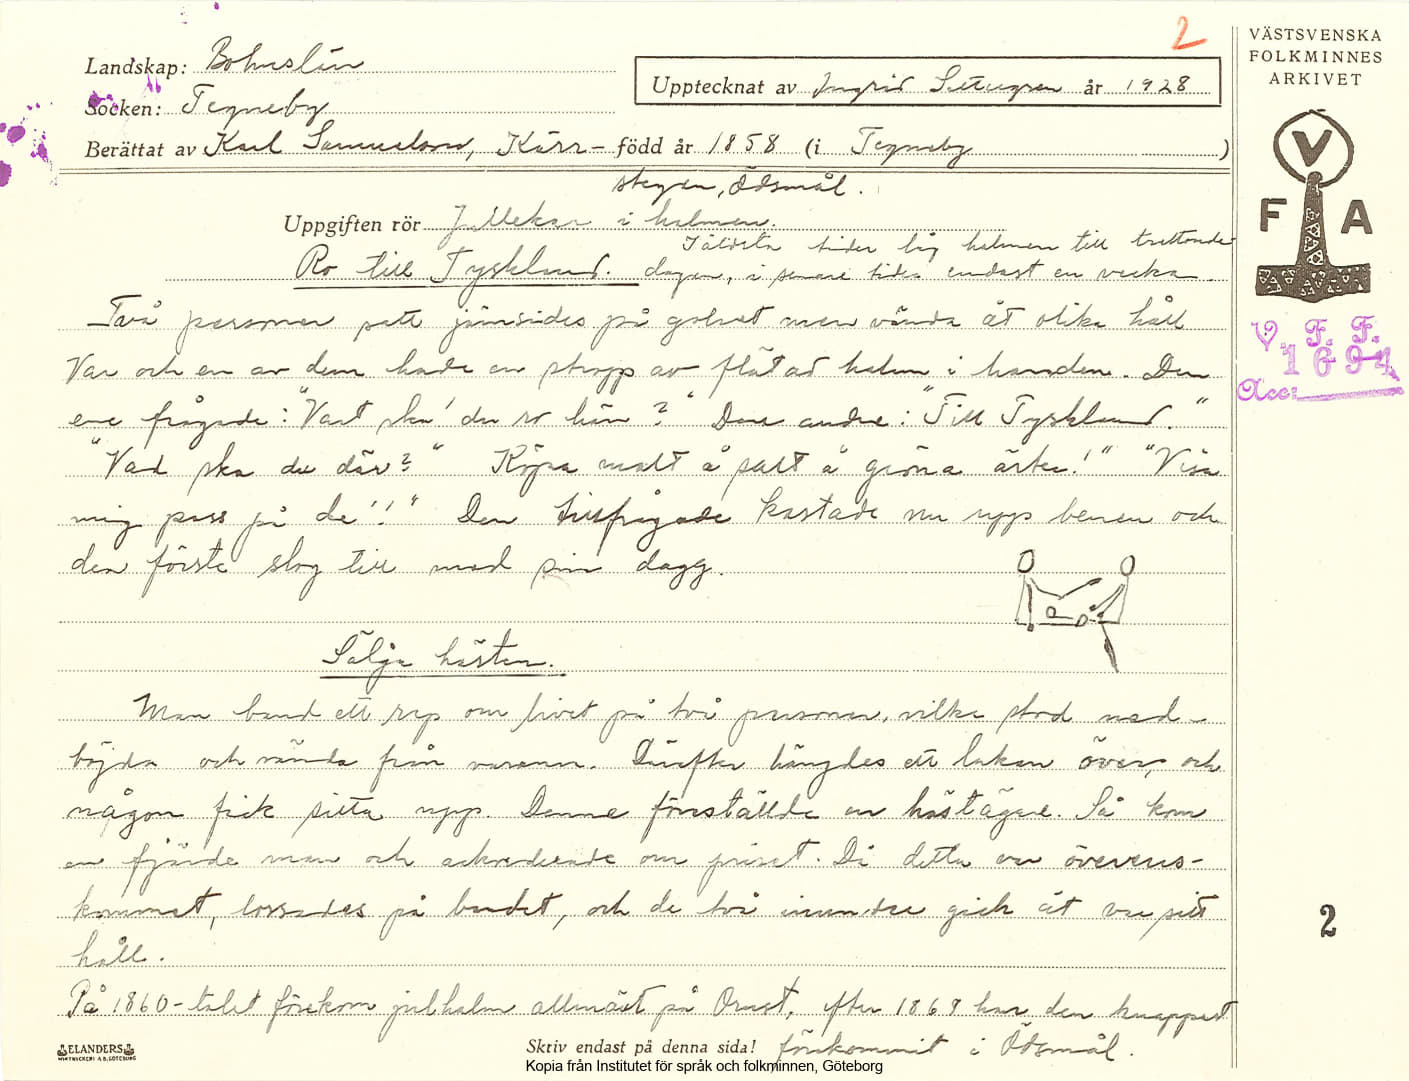 2
VÄSTSVENSKA
FOLKMINNES
ARKIVET
Landskap: Bohuslän
Upptecknat av Ingrid år 1928
Socken: Tegneby
Berättat av Karl Samuelsson, Kärr- född år 1858 (i Tegneby )
stegen, Ödsmål.
V
F A
Uppgiften rör Jullekar i halmen.
I äldsta tider låg halmen till trettonde-
Ro till Tyskland. dagen, i senare tider endast en vecka
Två personer satt jämsides på golvet men vända åt olika håll
Var och en av dem hade en stropp av flätad halm i handen. Den
ene frågade: "Vart ska' du ro hän?" Den andre: "Till Tyskland."
"Vad ska du där?" Köpa malt å salt å gröna ärter!" "Visa
mig pass på de'!" Den tillfrågade kastade nu upp benen och
den förste slog till med sin dagg.
Sälja hästen.
Man band ett rep om livet på två personer, vilka stod ned-
böjda och vända från varann. Därefter hängdes ett lakan över, och
någon fick sitta upp. Denne föreställde en hästägare. Så kom
en fjärde man och ackorderade om priset. Då detta var överens-
kommet, lossades på bandet, och de två inundre gick åt var sitt
håll.
På 1860-talet förekom julhalm allmänt på Orust, efter 1868 har den knappast
förekommit i Ödsmål.
V. F. F.
1694
Acc:
2
ELANDERS
WIKTRYCKERI A.B. GÖTEBORG
Skriv endast på denna sida!
Kopia från Institutet för språk och folkminnen, Göteborg